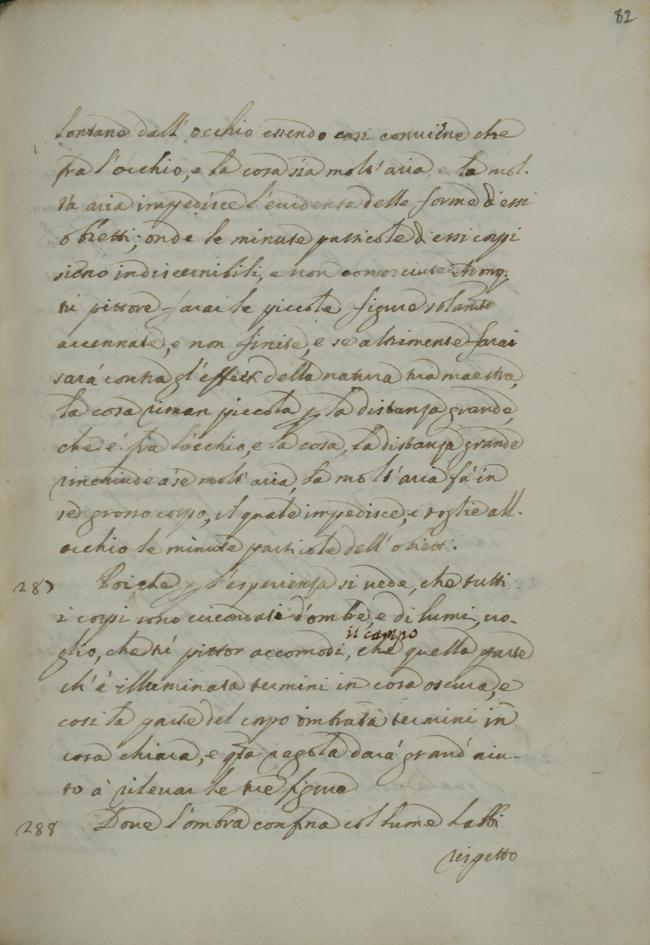 82
lontane dall' occhio essendo cosi conviene che
fra l'occhio, e la cosa sia molt' aria, e la mol-
ta aria impedisce l'euidenza delle forme d'essi
obietti; onde le minute particole d'essi corpi
sieno indiscernibili, e non conosciute Adonq:
tu pittore farai le piccole figure solamte
accennate, e non finite, e se altrimente farai
sará contra gl'effetti della natura tua maestra,
la cosa riman piccola p la distanza grande,
che é fra l'occhio, e la cosa, la distanza grande
rinchiude a'se molt' aria, la molt' aria fá in
sé grosso corpo, il quale impedisce, e toglie all'
occhio le minute particole dell' obietti.
287 Poiche p l'esperienza si vede, che tutti
i corpi sono circondati d'ombre, e di lumi, uo-
glio, che tú pittor accomodi, il campo che quella parte
ch' é illuminata termini in cosa oscura, e
cosi la parte del corpo ombrata termini in
cosa chiara, e qta regola dará grand' aiu-
to á rileuar le tue figure
288 Doue l'ombra confina col lume habbi
rispetto